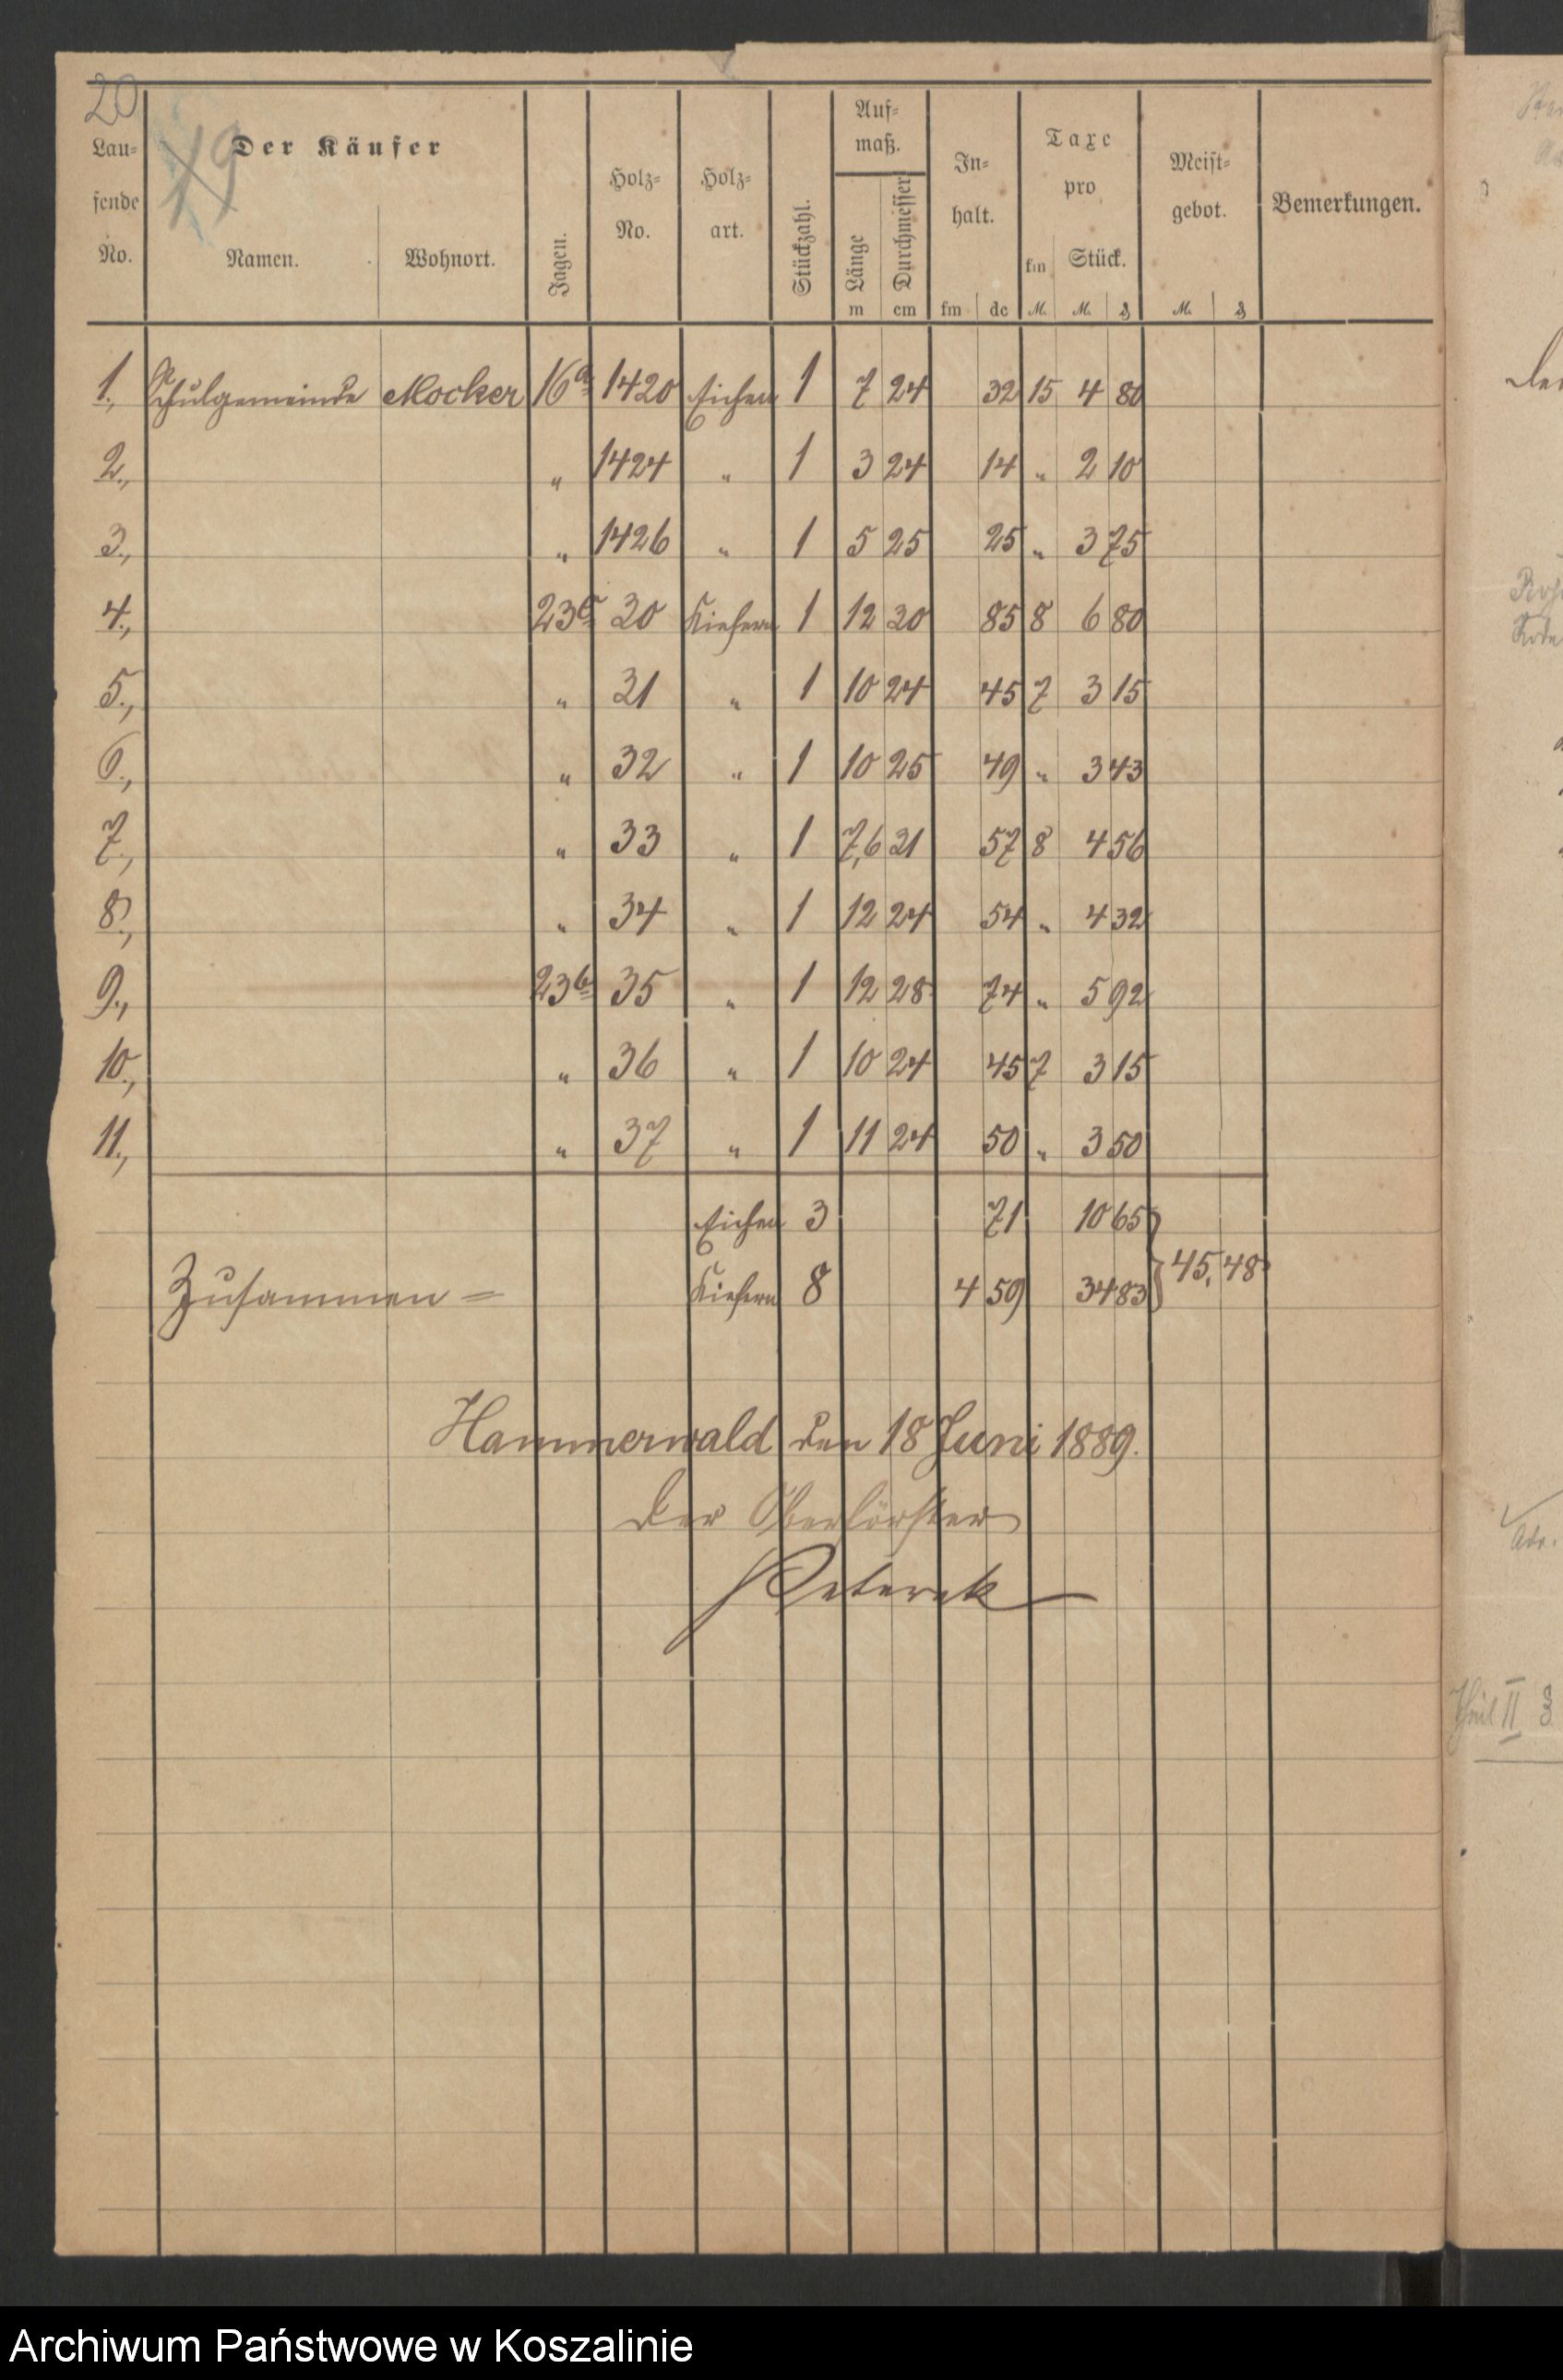 20
19
Lau-
fende
No.
Der Käufer
Namen.
Wohnort.
Jagen.
Holz-
No.
Holz-
art.
Stückzahl.
Auf-
maß.
Länge
m
Durchmesser
cm
In-
halt.
fm dc
Taxe
pro
fm Stück.
M. M. ₰
Meist-
gebot.
M. ₰
Bemerkungen.
1., Schulgemeinde Mocker 16a 1420 Eichen 1 7 24 32 15 4 80
2., " 1424 " 1 3 24 14 " 2 10
3., " 1426 " 1 5 25 25 " 3 75
4., 23 30 Kiefern 1 12 30 85 8 6 80
5., " 31 " 1 10 24 45 7 3 15
6., " 32 " 1 10 25 49 " 3 43
7., " 33 " 1 7,6 31 57 8 4 56
8., " 34 " 1 12 24 54 " 4 32
9., 23b 35 " 1 12 28 74 " 5 92
10., " 36 " 1 10 24 45 7 3 15
11., " 37 " 1 11 24 50 " 3 50
Eichen 3 71 10 65
Zusammen = Kiefern 8 4 59 34 83 45,48
Hammerwald den 18 Juni 1889.
Der Oberförster
Peterek
Theil II
Archiwum Państwowe w Koszalinie